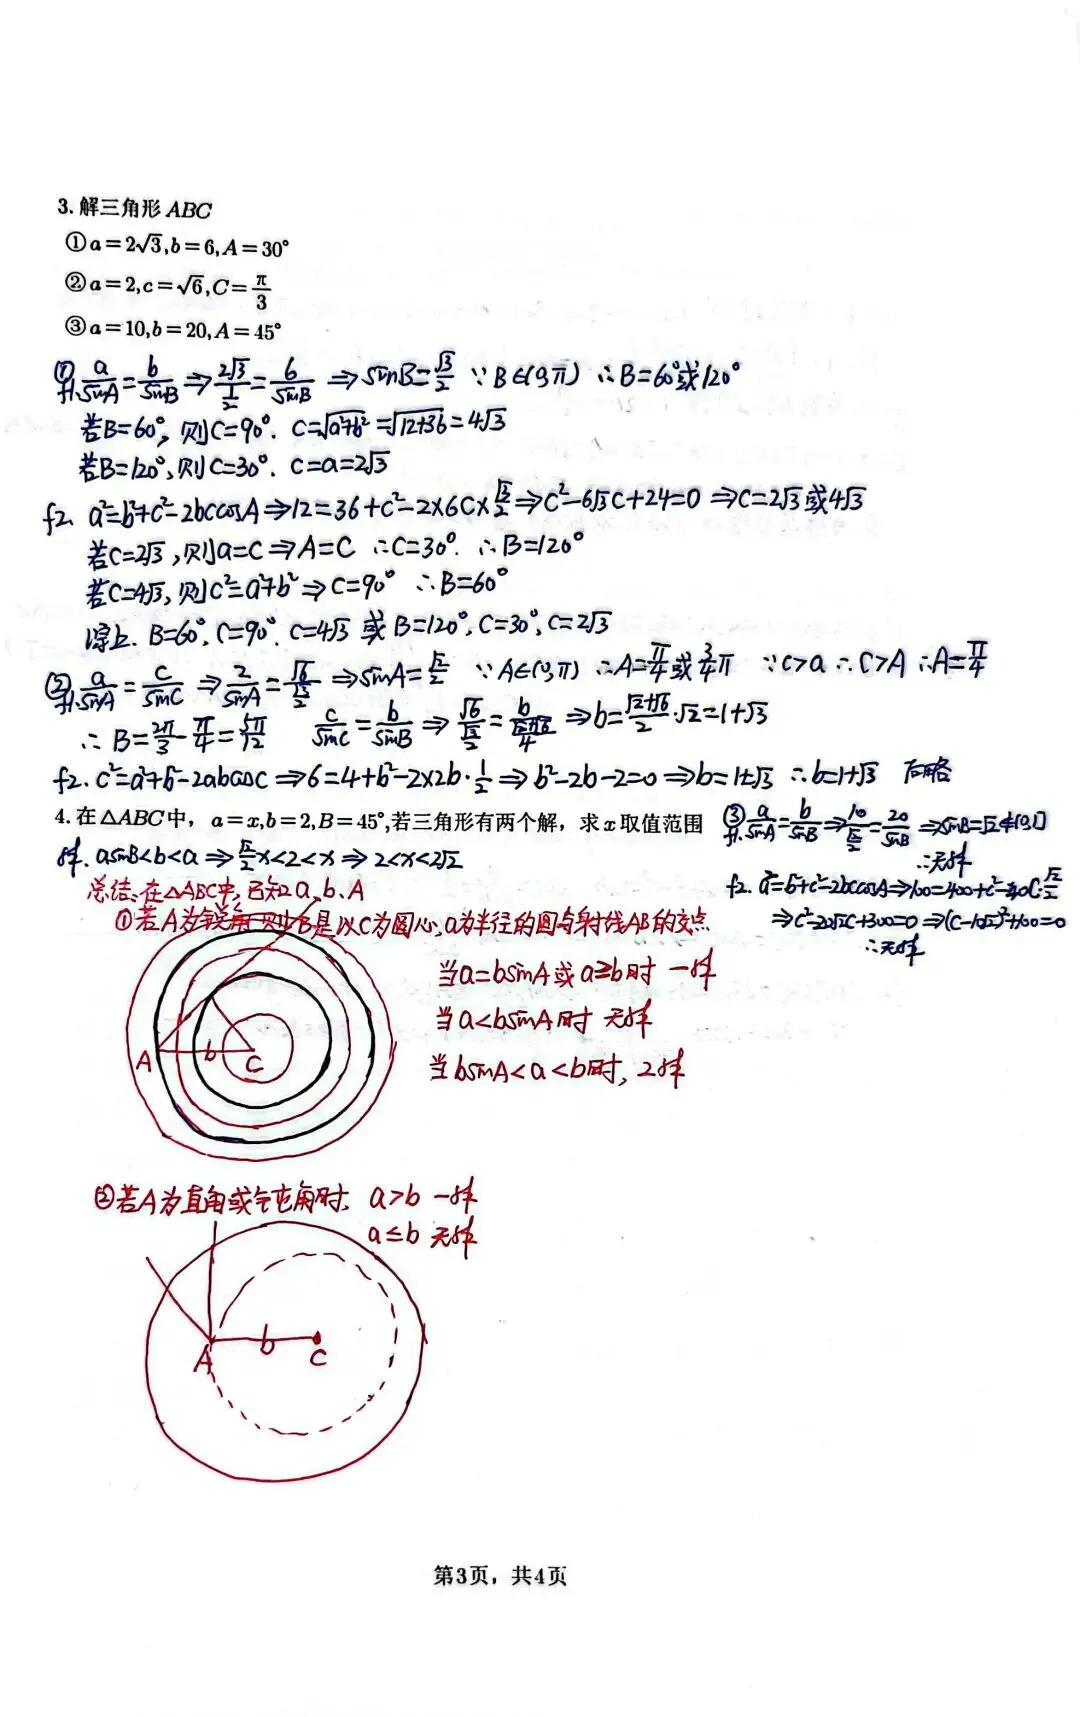 3. 解三角形 ABC
①a=2√3,b=6,A=30°
②a=2,c=√6,C=π/3
③a=10,b=20,A=45°
① f1. a/sinA=b/sinB⇒2√3/(1/2)=6/sinB ⇒sinB=√3/2 ∵B∈(0,π) ∴B=60°或120°
若B=60°,则C=90°. C=√(a²+b²)=√(12+36)=4√3
若B=120°,则C=30°. C=a=2√3
f2. a²=b²+c²-2bccosA⇒12=36+c²-2×6c×√3/2⇒c²-6√3c+24=0 ⇒c=2√3或4√3
若c=2√3,则a=c⇒A=C ∴C=30°. ∴B=120°
若c=4√3,则c²=a²+b²⇒C=90° ∴B=60°
综上. B=60°,C=90°,c=4√3 或 B=120°,C=30°,c=2√3
② f1. a/sinA=c/sinC ⇒2/sinA=√6/(√3/2)⇒sinA=√2/2 ∵A∈(0,π) ∴A=π/4或3/4π ∵c>a ∴C>A ∴A=π/4
∴B=2π/3-π/4=5π/12 c/sinC=b/sinB⇒√6/(√3/2)=b/((√2+√6)/4)⇒b=(√2+√6)/2·√2=1+√3
f2. c²=a²+b²-2abcosC⇒6=4+b²-2×2b·1/2⇒b²-2b-2=0⇒b=1±√3 ∴b=1+√3 后略
4. 在△ABC中，a=x,b=2,B=45°,若三角形有两个解，求x取值范围
解. asinB<b<a⇒√2/2x<2<x⇒2<x<2√2
③ f1. a/sinA=b/sinB⇒10/(√2/2)=20/sinB⇒sinB=√2∉(0,1]
∴无解
f2. a²=b²+c²-2bccosA⇒100=400+c²-40c·√2/2
⇒c²-20√2c+300=0⇒(c-10√2)²+100=0
∴无解
总结:在△ABC中,已知a,b,A
①若A为锐角 则B是以C为圆心,a为半径的圆与射线AB的交点
当a=bsinA或a≥b时 一解
当a<bsinA时 无解
当bsinA<a<b时, 2解
A b C
②若A为直角或钝角时, a>b 一解
a≤b 无解
A b C
第3页，共4页